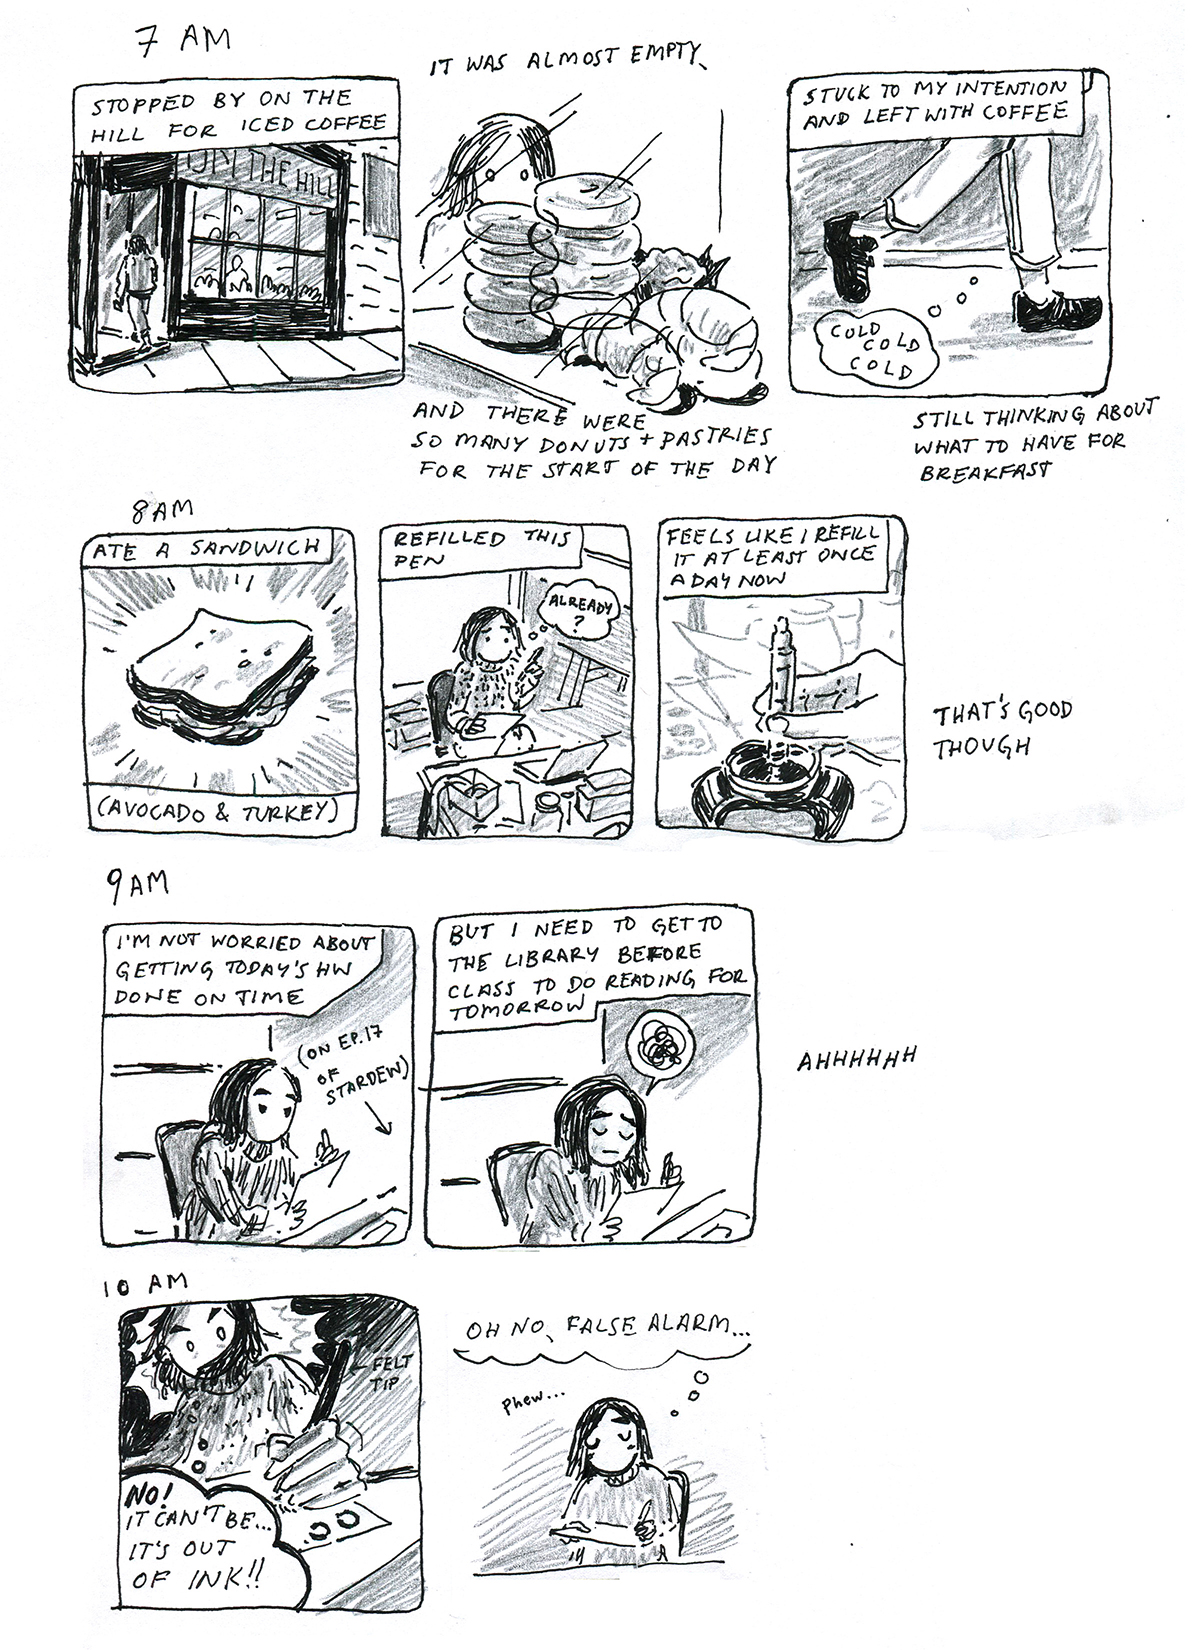 7 AM
STOPPED BY ON THE
HILL FOR ICED COFFEE
ON THE HILL
IT WAS ALMOST EMPTY,
AND THERE WERE
SO MANY DONUTS + PASTRIES
FOR THE START OF THE DAY
STUCK TO MY INTENTION
AND LEFT WITH COFFEE
COLD
COLD
COLD
STILL THINKING ABOUT
WHAT TO HAVE FOR
BREAKFAST
8 AM
ATE A SANDWICH
(AVOCADO & TURKEY)
REFILLED THIS
PEN
ALREADY
?
FEELS LIKE I REFILL
IT AT LEAST ONCE
A DAY NOW
THAT'S GOOD
THOUGH
9 AM
I'M NOT WORRIED ABOUT
GETTING TODAY'S HW
DONE ON TIME
(ON EP.17
OF
STARDEW)
BUT I NEED TO GET TO
THE LIBRARY BEFORE
CLASS TO DO READING FOR
TOMORROW
AHHHHHH
10 AM
FELT
TIP
NO!
IT CAN'T BE...
IT'S OUT
OF INK!!
OH NO, FALSE ALARM...
Phew...